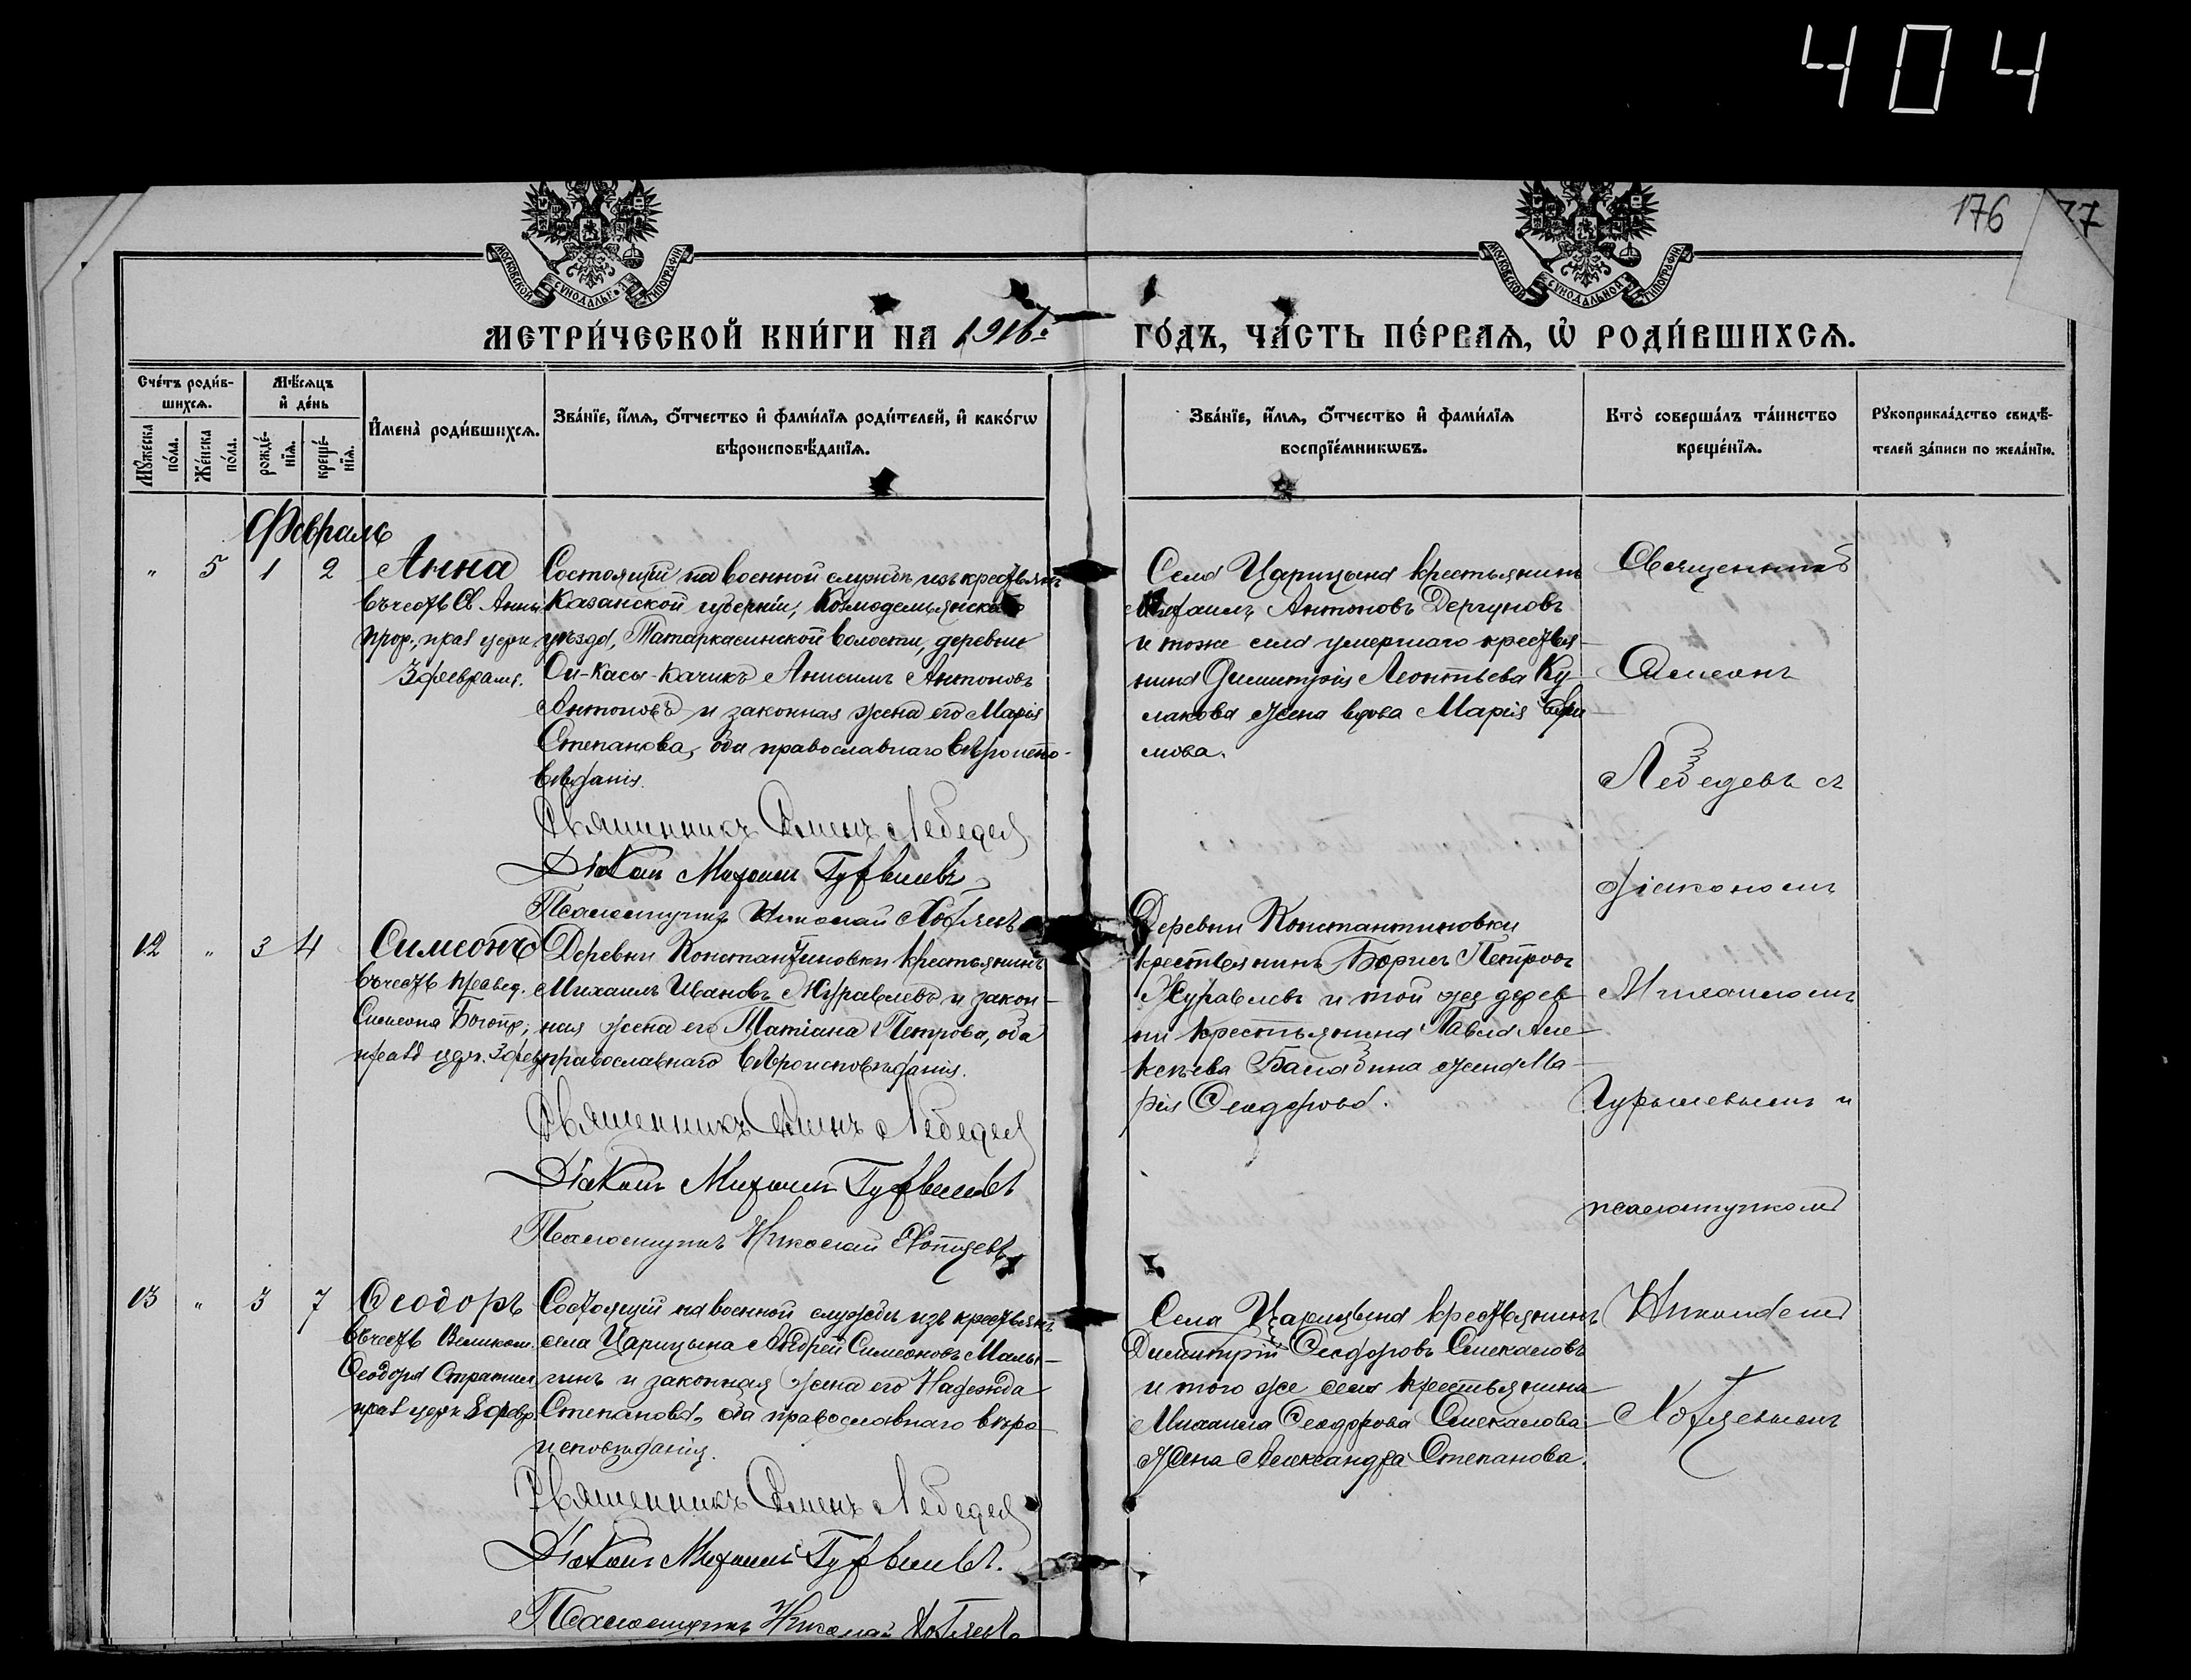 404
176
77
МОСКОВСКОЙ СѴНОДАЛЬНОЙ ТИПОГРАФІИ
МОСКОВСКОЙ СѴНОДАЛЬНОЙ ТИПОГРАФІИ
МЕТРИ́ЧЕСКОЙ КНИ́ГИ НА 1916 ГО́ДЪ, ЧА́СТЬ ПЕ́РВАѦ, Ѡ҆ РОДИ́ВШИХСѦ.
Сче́тъ роди́в-
шихсѧ.
Мѣ́сѧцъ
и҆ де́нь
Мꙋ́жеска
по́ла.
Же́нска
по́ла.
рожде́-
нїѧ.
креще́-
нїѧ.
И҆мена̀ роди́вшихсѧ.
Зва́нїе, и҆́мѧ, ѻ҆́тчество и҆ фами́лїѧ роди́телей, и҆ како́гѡ
вѣроисповѣ́данїѧ.
Зва́нїе, и҆́мѧ, ѻ҆́тчество и҆ фами́лїѧ
воспрїе́мникѡвъ.
Кто̀ соверша́лъ та́инство
креще́нїѧ.
Рꙋкоприкла́дство свидѣ́-
телей за́писи по жела́нїю.
Февраль
" 5 1 2 Анна
въ честь Св. Анны
прор., празд. церк.
3 февраля.
Состоящій на военной службѣ изъ крестьянъ
Казанской губерніи, Козмодемьянскаго
уѣзда, Татаркасинской волости, деревни
Ой-Касы-Качикъ Анисимъ Антоновъ
Антоновъ и законная жена его Марія
Степанова, оба православнаго вѣроиспо-
вѣданія.
Священникъ Симеонъ Лебедев
Діаконъ Михаилъ Гурьылевъ
Псаломщикъ Николай Хотяевъ
Села Царицына крестьянинъ
Михаилъ Антоновъ Дергуновъ
и того же села умершаго крестья-
нина Димитрія Леонтьева Ку-
лакова жена вдова Марія
мова.
12 " 3 4 Симеонъ
въ честь правед.
Симеона Богопр.,
празд. церк. 3 февр.
Деревни Константиновки крестьянинъ
Михаилъ Ивановъ Журавлевъ и закон-
ная жена его Татіана Петрова, оба
православнаго вѣроисповѣданія.
Священникъ Симеонъ Лебедев
Діаконъ Михаилъ Гурьылевъ
Псаломщикъ Николай Хотяевъ
Деревни Константиновки
крестьянинъ Борисъ Петровъ
Журавлевъ и той же дерев-
ни крестьянина Павла Але-
ксѣева Балабина жена Ма-
рія Ѳеодорова.
13 " 3 7 Ѳеодоръ
въ честь Великом.
Ѳеодора Стратил.,
празд. церк. 8 февр.
Состоящій на военной службѣ изъ крестьянъ
села Царицына Андрей Симеоновъ Малы-
гинъ и законная жена его Надежда
Степанова, оба православнаго вѣро-
исповѣданія.
Священникъ Симеонъ Лебедев
Діаконъ Михаилъ Гурьылевъ.
Псаломщикъ Николай Хотяевъ
Села Царицына крестьянинъ
Димитрій Ѳеодоровъ Смекаловъ
и того же села крестьянина
Михаила Ѳеодорова Смекалова
жена Александра Степанова.
Священникъ
Симеонъ
Лебедевъ съ
діакономъ
Михаиломъ
Гурылевымъ и
псаломщикомъ
Николаемъ
Хотяевымъ